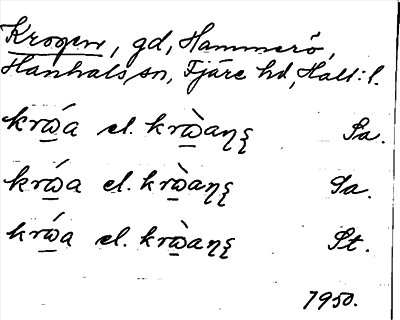 Krogen, gd, Hammerö,
Hanhals sn, Fjäre hd, Hall:l.
krώ̲a el. krὼ̲aŋę Sa.
krώ̲a el. krὼ̲aŋę Sa.
krώ̲a el. krὼ̲aŋę St.
1950.